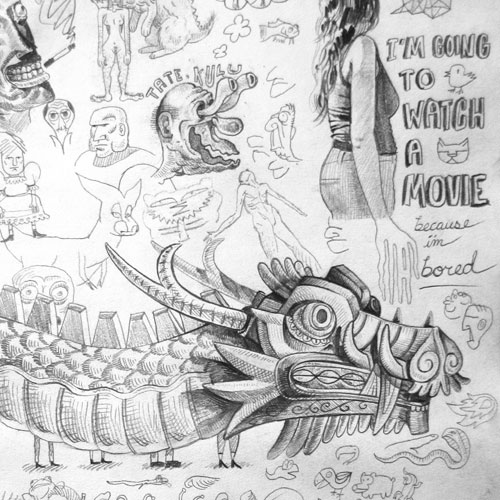 TATE KULU
I'M GOING
TO
WATCH
A
MOVIE
because
i'm
bored